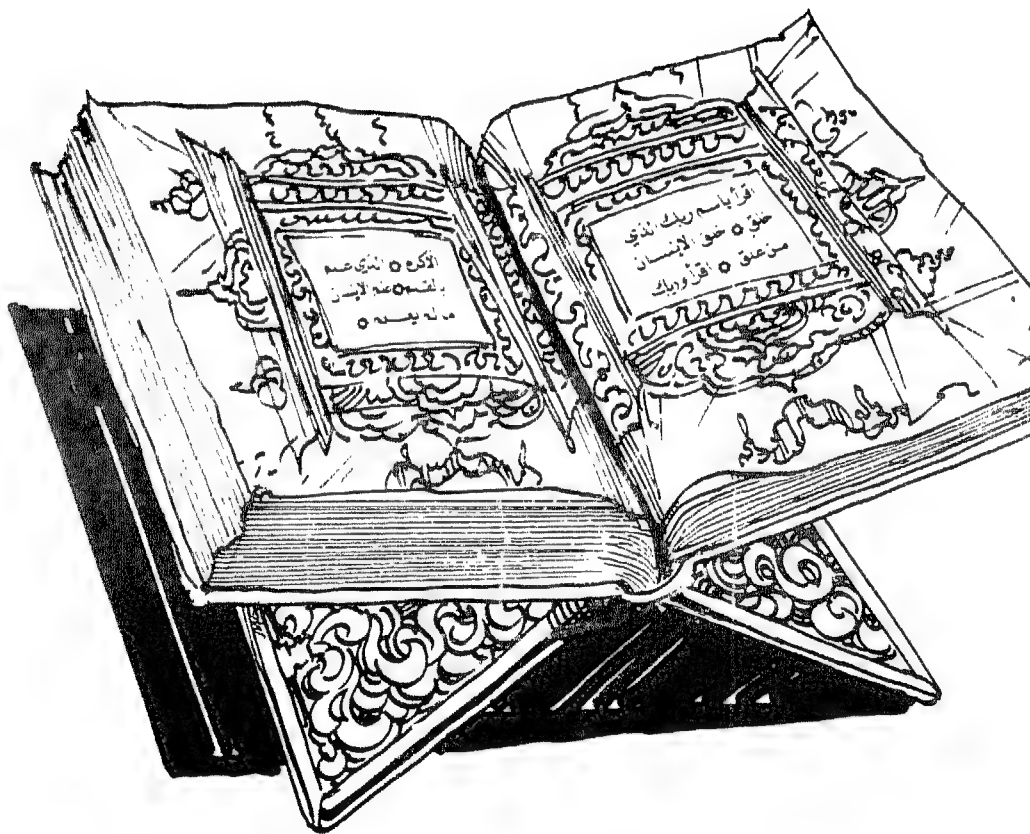 اقرأ باسم ربك الذي
خلق ۞ خلق الإنسان
من علق ۞ اقرأ وربك
الأكرم ۞ الذي علم
بالقلم ۞ علم الإنسان
ما لم يعلم ۞